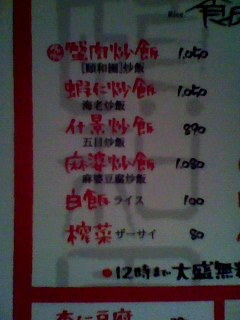 Rice 食
蟹肉炒飯 1,050
[頤和園]炒飯
蝦仁炒飯 1,050
海老炒飯
什景炒飯 890
五目炒飯
麻婆炒飯 1,080
麻婆豆腐炒飯
白飯 ライス 100
榨菜 ザーサイ 80
●12時まで大盛無料
杏仁豆腐